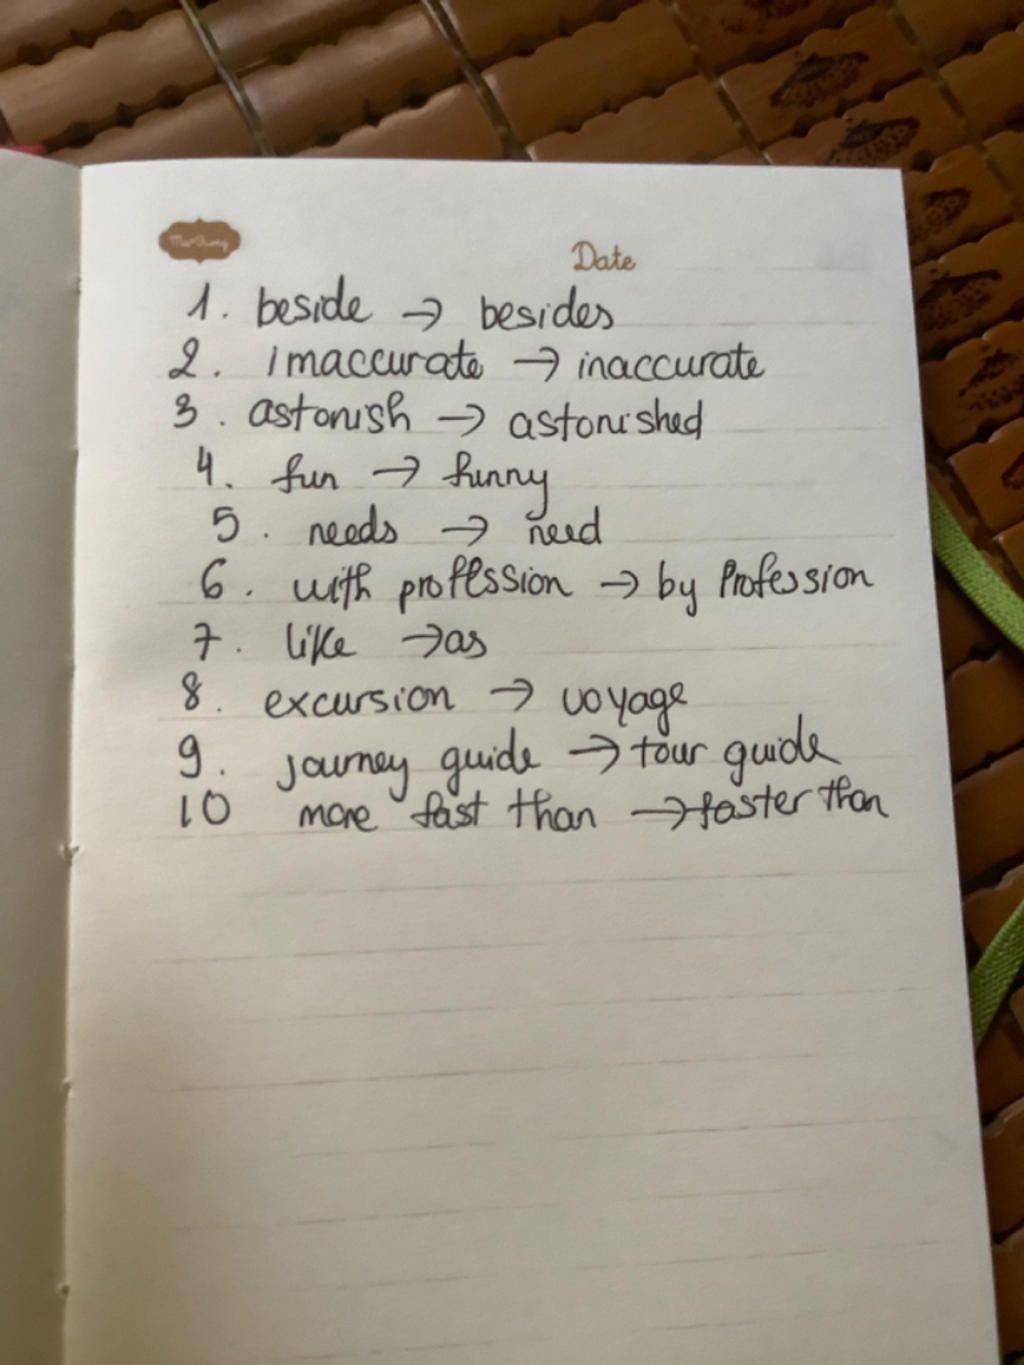 Date
1. beside → besides
2. imaccurate → inaccurate
3. astonish → astonished
4. fun → funny
5. needs → need
6. with proffession → by Profession
7. like → as
8. excursion → voyage
9. journey guide → tour guide
10 more fast than → faster than